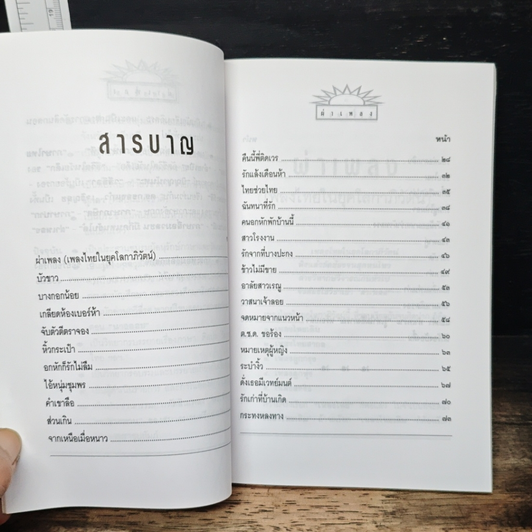 สารบาญ
ผ่าเพลง (เพลงไทยในยุคโลกาภิวัตน์)
บัวขาว
บางกอกน้อย
เกลียดห้องเบอร์ห้า
จับตัวตีตราจอง
หิ้วกระเป๋า
อกหักก็รักไม่ลืม
ไอ้หนุ่มชุมพร
คำเขาลือ
ส่วนเกิน
จากเหนือเมื่อหนาว
ผ่าเพลง
หน้า
คืนนี้พี่ติดเวร ๒๘
รักแล้งเดือนห้า ๓๒
ไทยช่วยไทย ๓๕
ฉันทนาที่รัก ๓๘
คนอกหักพักบ้านนี้ ๔๑
สาวโรงงาน ๔๓
รักจากที่บางปะกง ๔๖
ข้าวไม่มีขาย ๔๙
อาลัยสาวเรณู ๕๑
วาสนาเจ้าลอย ๕๖
จดหมายจากแนวหน้า ๕๘
ต.ช.ด. ขอร้อง ๖๐
หมายเหตุผู้หญิง ๖๓
ระบำงิ้ว ๖๕
ดั่งเธอมีเวทย์มนต์ ๖๗
รักเก่าที่บ้านเกิด ๗๐
กระทงหลงทาง ๗๓